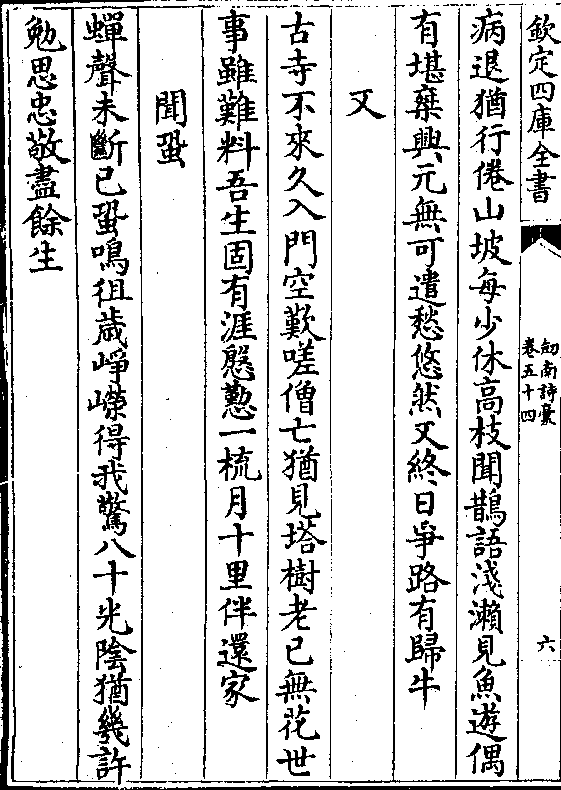 欽定四庫全書
劒南詩稾
卷五十四
六
病退猶行倦山坡每少休高枝聞鵲語淺瀨見魚遊偶
有堪乗興元無可遣愁悠然又終日爭路有歸牛
又
古寺不來久入門空歎嗟僧亡猶見塔樹老已無花世
事雖難料吾生固有涯慇懃一梳月十里伴還家
聞蛩
蟬聲未斷已蛩鳴徂歳崢嶸得我驚八十光陰猶幾許
勉思忠敬盡餘生